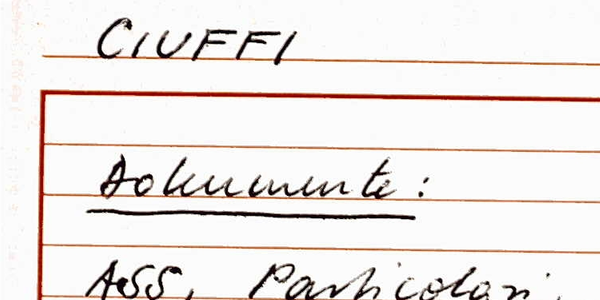 CIUFFI
Dokumente:
ASS. Particolari,